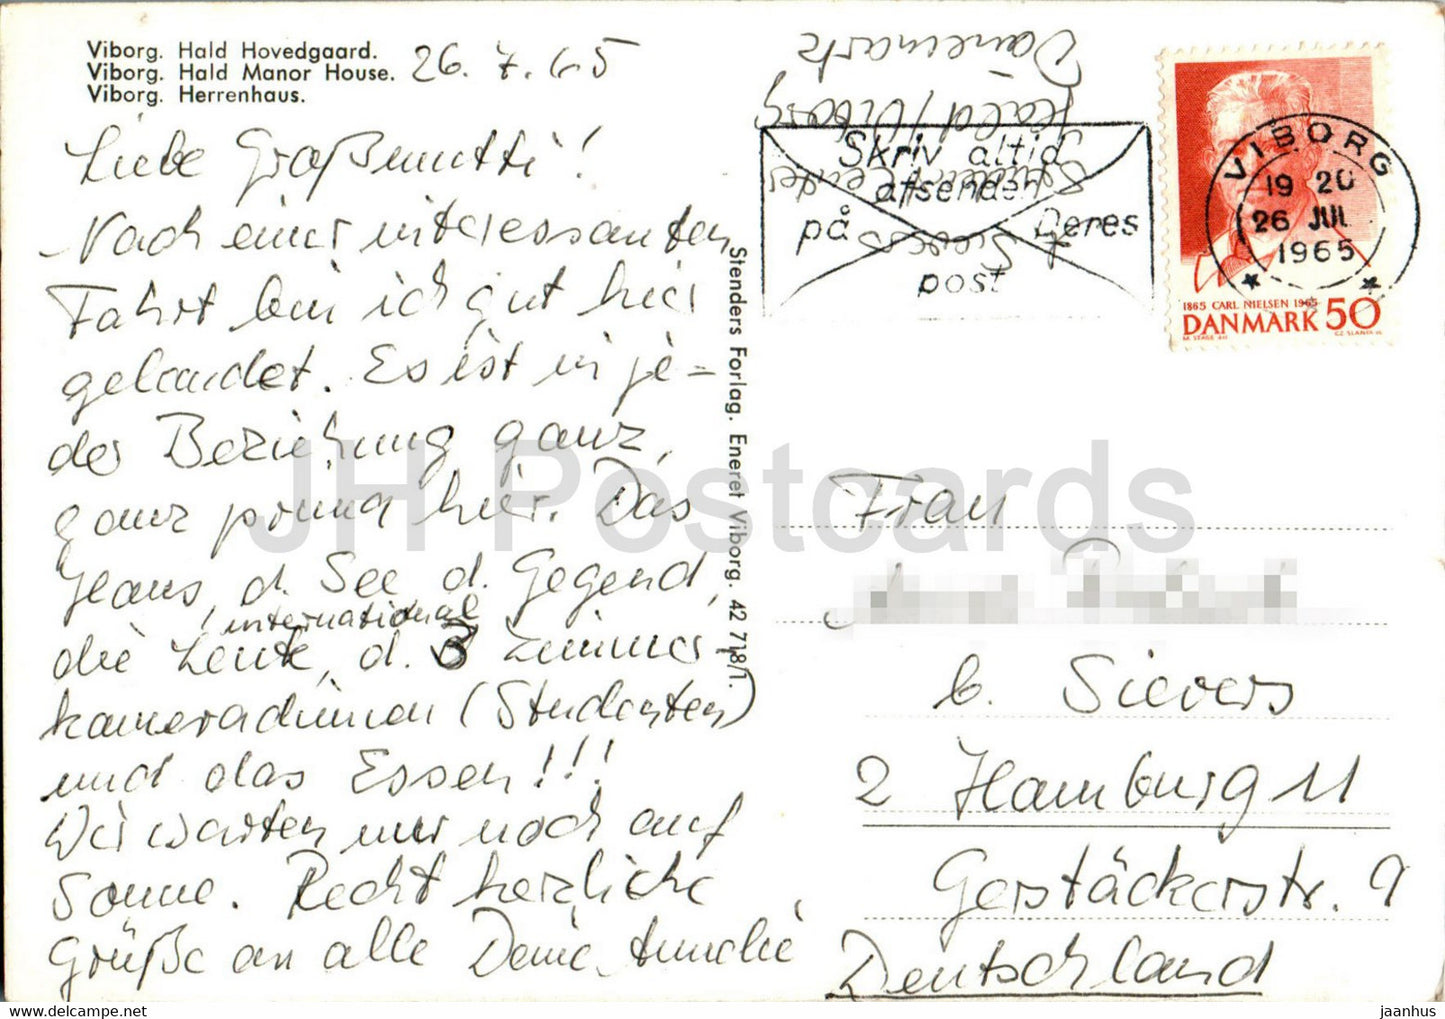 Viborg. Hald Hovedgaard.
Viborg. Hald Manor House.
Viborg. Herrenhaus.
26. 7. 65
Liebe Großmutti!
Nach einer interessanten
Fahrt bin ich gut hier
gelandet. Es ist in je=
der Beziehung ganz,
ganz prima hier. Das
Haus, d. See d. Gegend,
die Leute, international d. 3 Zimmer-
kameradinnen (Studenten)
und das Essen!!!
Wir warten nur noch auf
Sonne. Recht herzliche
Grüße an alle Deine Annelie
Stenders Forlag. Eneret Viborg. 42 718/1.
Sievers
Hald/Viborg
Dänemark
Skriv altid
afsender
på Deres
post
VIBORG
19 20
26 JUL
1965
1865 CARL NIELSEN 1965
DANMARK 50
Frau
b. Sievers
2 Hamburg 11
Gerstäckerstr. 9
Deutschland
JH Postcards
jaanhus